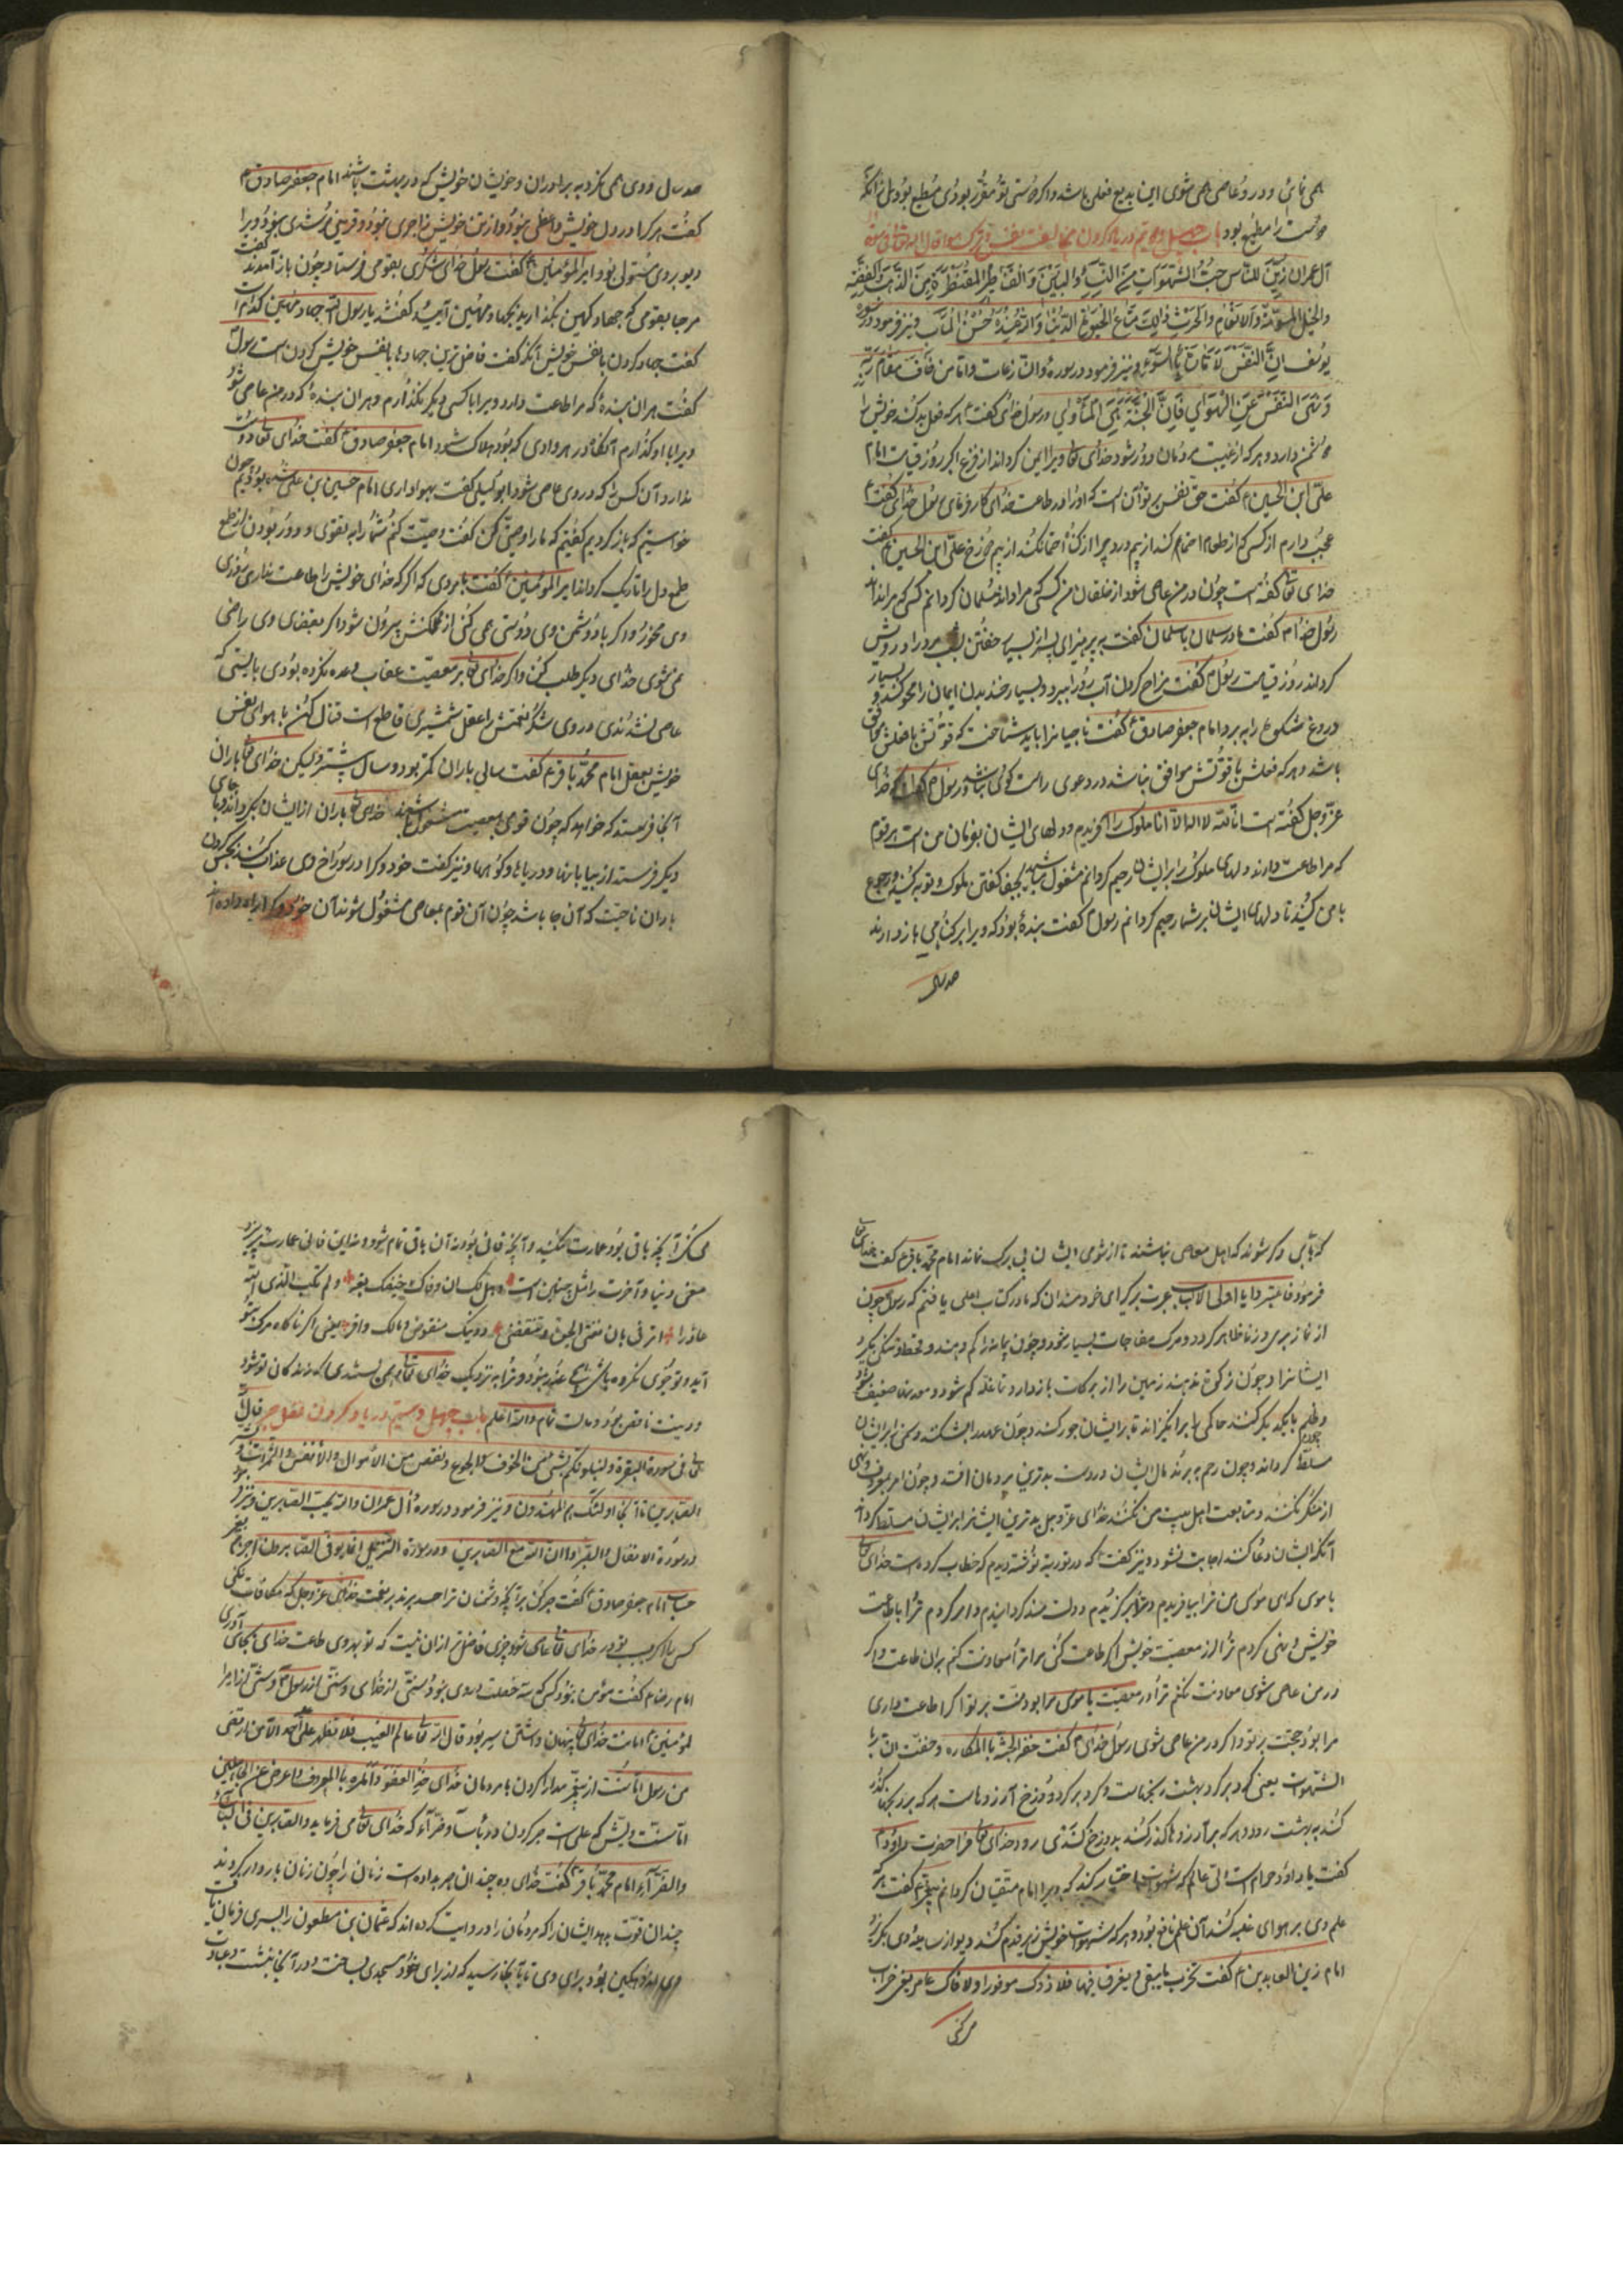 همی نمائی و در و عاصی همی شوی این بدیع فعلی باشد و اگر دوستی تو مقرر بودی مطیع بودی زانکه
دوست را مطیع بود باب چهل و هفتم در یاد کردن مخالفت نفس و ترک هوا قال الله تعالی فی سورة
آل عمران زین للناس حب الشهوات من النساء والبنین والقناطیر المقنطرة من الذهب والفضة
والخیل المسومة والانعام والحرث ذلک متاع الحیوة الدنیا والله عنده حسن المآب و نیز فرمود در سورة
یوسف ان النفس لامارة بالسوء و نیز فرمود در سوره والنازعات واما من خاف مقام ربه
ونهی النفس عن الهوی فان الجنة هی المأوی و رسول خدای گفت هر که فعل بد کند خویش را
دشمن دارد و هر که از غیبت مردمان دور شود خدای تعالی ویرا ایمن گرداند از فزع اکبر روز قیامت امام
علی ابن الحسین گفت حق نفس بر تو آن است که او را در طاعت خدای کار فرمای رسول خدای گفت
عجب دارم از کسی که از طعام احتما کند از بیم درد چرا از گناه احتما نکند از بیم دوزخ علی ابن الحسین گفت
خدای تعالی گفته است چون در من عاصی شود از خلقان من کسی که مرا داند مسلمان گردانم کسی که مرا نداند
رسول خدا گفت مادر سلمان با سلمان گفت بپرهیز ای پسر از بسیار خفتن شب مرد را درویش
گرداند روز قیامت رسول گفت مزاح کردن آب رو را ببرد و بسیار خندیدن ایمان را محو کند و بسیار
دروغ شکوه را ببرد امام جعفر صادق گفت ناجیانرا باید شناخت که قولش با فعلش موافق
باشد و هر که فعلش با قولش موافق نباشد در دعوی راست گوی نباشد و رسول گفت که خدای
عز و جل گفته است انا الله لا اله الا انا ملوک را آفریدم و دلهای ایشان بفرمان من است هر قوم
که مرا طاعت دارند دلهای ملوک را بر ایشان رحیم گردانم مشغول مباشید بجفا گفتن ملوک و توبه کنید و رجوع
با من کنید تا دلهای ایشان بر شما رحیم گردانم رسول گفت بنده بود که ویرا بر گناهی باز دارند
صد سال
صد سال و وی همی نگرد به برادران و خویشان خویش که در بهشت باشند امام جعفر صادق
گفت هر که را در دل خویش واعظی نبود و از تن خویش زاجری نبود و قرینی مرشدی نبود ویرا
دیو بر وی مستولی بود امیر المؤمنین گفت رسول خدای لشکری بقومی فرستاد چون باز آمدند گفت
مرحبا بقومی که جهاد کهین بگذاردند و بجهاد مهین آمدند گفتند یا رسول الله جهاد مهین کدام است
گفت جهاد کردن با نفس خویش آنکه گفت فاضل ترین جهادها با نفس خویش کردن است رسول
گفت هر آن بنده که مرا طاعت دارد ویرا با کسی دیگر نگذارم و هر آن بنده که در من عاصی شود
ویرا با او گذارم آنگاه در هر وادی که بود هلاک شود امام جعفر صادق گفت خدای تعالی دوست
ندارد آن کس را که در وی عاصی شود ابو کمیل گفت بهواداری امام حسین بن علی شده بودیم چون
خواستیم که باز گردیم گفتیم که ما را وصیتی کن گفت وصیت کنم شما را به تقوی و دور بودن از طمع
طمع دل را تاریک گرداند امیر المؤمنین گفت با مردی که اگر که خدای خویش را طاعت نداری روزی
وی مخور و اگر با دشمن وی دوستی همی کنی از مملکتش بیرون شو و اگر بقضای وی راضی
نمی شوی خدای دیگر طلب کن و اگر خدای تعالی بر معصیت عقاب وعده نکرده بودی بایستی که
عاصی نشدندی در وی شکر نعمتش را عقل شمشیری قاطع است قتال کن با هوای نفس
خویش بعقل امام محمد باقر گفت سالی باران کمتر بود و سالی بیشتر ولیکن خدای تعالی باران
آنجا فرستد که خواهد که چون قومی بمعصیت مشغول شوند خدای تعالی باران از ایشان بگرداند و با جای
دیگر فرستد از بیابانها و دریاها و کوهها و نیز گفت خدوکرا در سوراخ وی عذاب کنند بحبس کردن
باران ناحیت که آن جا باشد چون آن قوم بمعاصی مشغول شوند آن خدوکرا راه داده
که با پس وکر شوند که اهل معاصی نباشند تا از شومی ایشان بی برگ نماند امام محمد باقر گفت خدای تعالی
فرمود فاعتبروا یا اولی الالباب عبرت برگیر ای خردمندان که ما در کتاب علی یافتیم که رسول چون
از نماز بری و زنا ظاهر گردد و مرگ مفاجات بسیار شود و چون پیمانه را کم دهند و قحط و تنگی بگیرد
ایشانرا و چون زکوة ندهند زمین را از برکات باز دارد تا غله کم شود و معدنها ضعیف شود
و ظلم با یکدیگر کنند حاکمی را برانگیزاند تا بر ایشان جور کند و چون عهدها بشکنند دشمن را بر ایشان
مسلط گرداند و چون رحم ببرند مال ایشان در دست بدترین مردمان افتد و چون امر بمعروف و نهی
از منکر نکنند و متابعت اهل بیت من نکنند خدای عز و جل بدترین ایشانرا بر ایشان مسلط گرداند
آنگه ایشان دعا کنند اجابت نشود و نیز گفت که در توریة نوشته دیدم که خطاب کرده است خدای تعالی
با موسی که ای موسی من ترا بیافریدم و ترا برگزیدم و دولت مند گردانیدم و امر کردم ترا بطاعت
خویش و نهی کردم ترا از معصیت خویش اگر طاعت کنی مرا ترا معاونت کنم بر آن طاعت و اگر
در من عاصی شوی معاونت نکنم ترا در معصیت یا موسی مرا بود منت بر تو اگر طاعت داری
مرا بود حجت بر تو و اگر در من عاصی شوی رسول خدای گفت حفت الجنة بالمکاره و حفت النار
الشهوات یعنی گرد بر گرد بهشت رنجهاست و گرد بر گرد دوزخ آرزوهاست هر که بر رنجها گذر
کند به بهشت رود و هر که بر آرزوها گذر کند بدوزخ رود خدای تعالی فرا حضرت داود
گفت یا داود حرام است آن عالم که شهوت اختیار کند که ویرا امام متقیان گردانم پیغمبر گفت هر که
علم وی بر هوای غلبه کند آن علم نافع بود و هر که شهوات خویش زیر قدم کند دیو از سایه وی بگریزد
امام زین العابدین گفت تخرب ما یبقی و یعرف فیها فلا ذاک موفور او لا ذاک عامر یعنی خراب
می کنی
می کنی آنچه باقی بود و عمارت میکنید و آنچه فانی بود نه آن باقی تمام شود و نه این فانی عمارت پذیرد
معنی دنیا و آخرت را مثل چنین است وهل لک ان وافاک حتفک بغتة ولم تکتسب الذی الله
عاذرا اترضی بان تفنی الحیوة وتنقضی ودینک منقوص ومالک وافر یعنی اگر ناگاه مرگ بتو
آید و توبه ای نکرده باشی هیچ عذر نبود ترا به نزدیک خدای تعالی همی پسندی که زندگانی تو شود
و دینت ناقص بود و مالت تمام والله اعلم باب چهل و هشتم در یاد کردن فضل صبر قال الله
تعالی فی سورة البقرة ولنبلونکم بشیء من الخوف والجوع ونقص من الاموال والانفس والثمرات وبشر
الصابرین تا آنجا اولئک هم المهتدون و نیز فرمود در سورة آل عمران والله یحب الصابرین و نیز در
در سورة الانفال اصبروا ان الله مع الصابرین و در سورة التنزیل انما یوفی الصابرون اجرهم بغیر
حساب امام جعفر صادق گفت صبر کن بر آنچه دشمنان ترا حسد برند بر نعمت خدای عز و جل که مکافات نکنی
امام رضا گفت مؤمن نبود کسی که سه خصلت در وی نبود سنتی از خدای و سنتی از رسول و سنتی از امیر
لمؤمنین امانت خدای پنهان داشتن سر بود قال الله تعالی عالم الغیب فلا یظهر علی غیبه احدا الا من ارتضی
من رسول اما سنت از پیغمبر مدارا کردن با مردمان خدای خذ العفو وأمر بالمعروف واعرض عن الجاهلین
اما سنت ولیش که علی است صبر کردن در بأسا و ضرآء که خدای تعالی می فرماید والصابرین فی البأسآء
والضرآء امام محمد باقر گفت خدای ده چندان صبر بداده است زنان را چون زنان باردار گردند
چندان قوت بدهد ایشان را که مردمان را و روایت کرده اند که عثمان بن مظعون را پسری فرمان یافت
وی اندوهگین بود برای وی تا بآنجا رسید که از برای خود مسجدی بساخت و در آنجا بنشست و عبادت